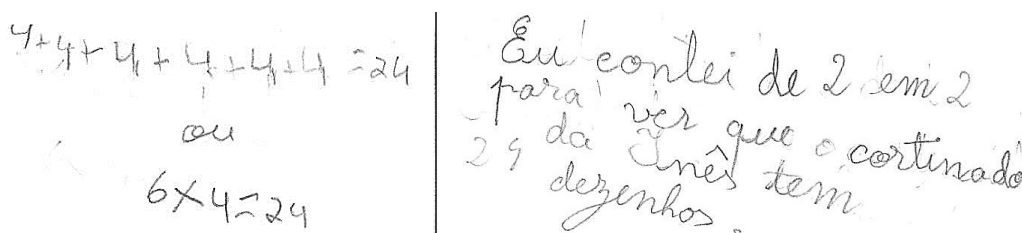 4+4+4+4+4+4=24
ou
6×4=24
Eu contei de 2 em 2
para ver que o cortinado
da Inês tem
24 dezenhos.